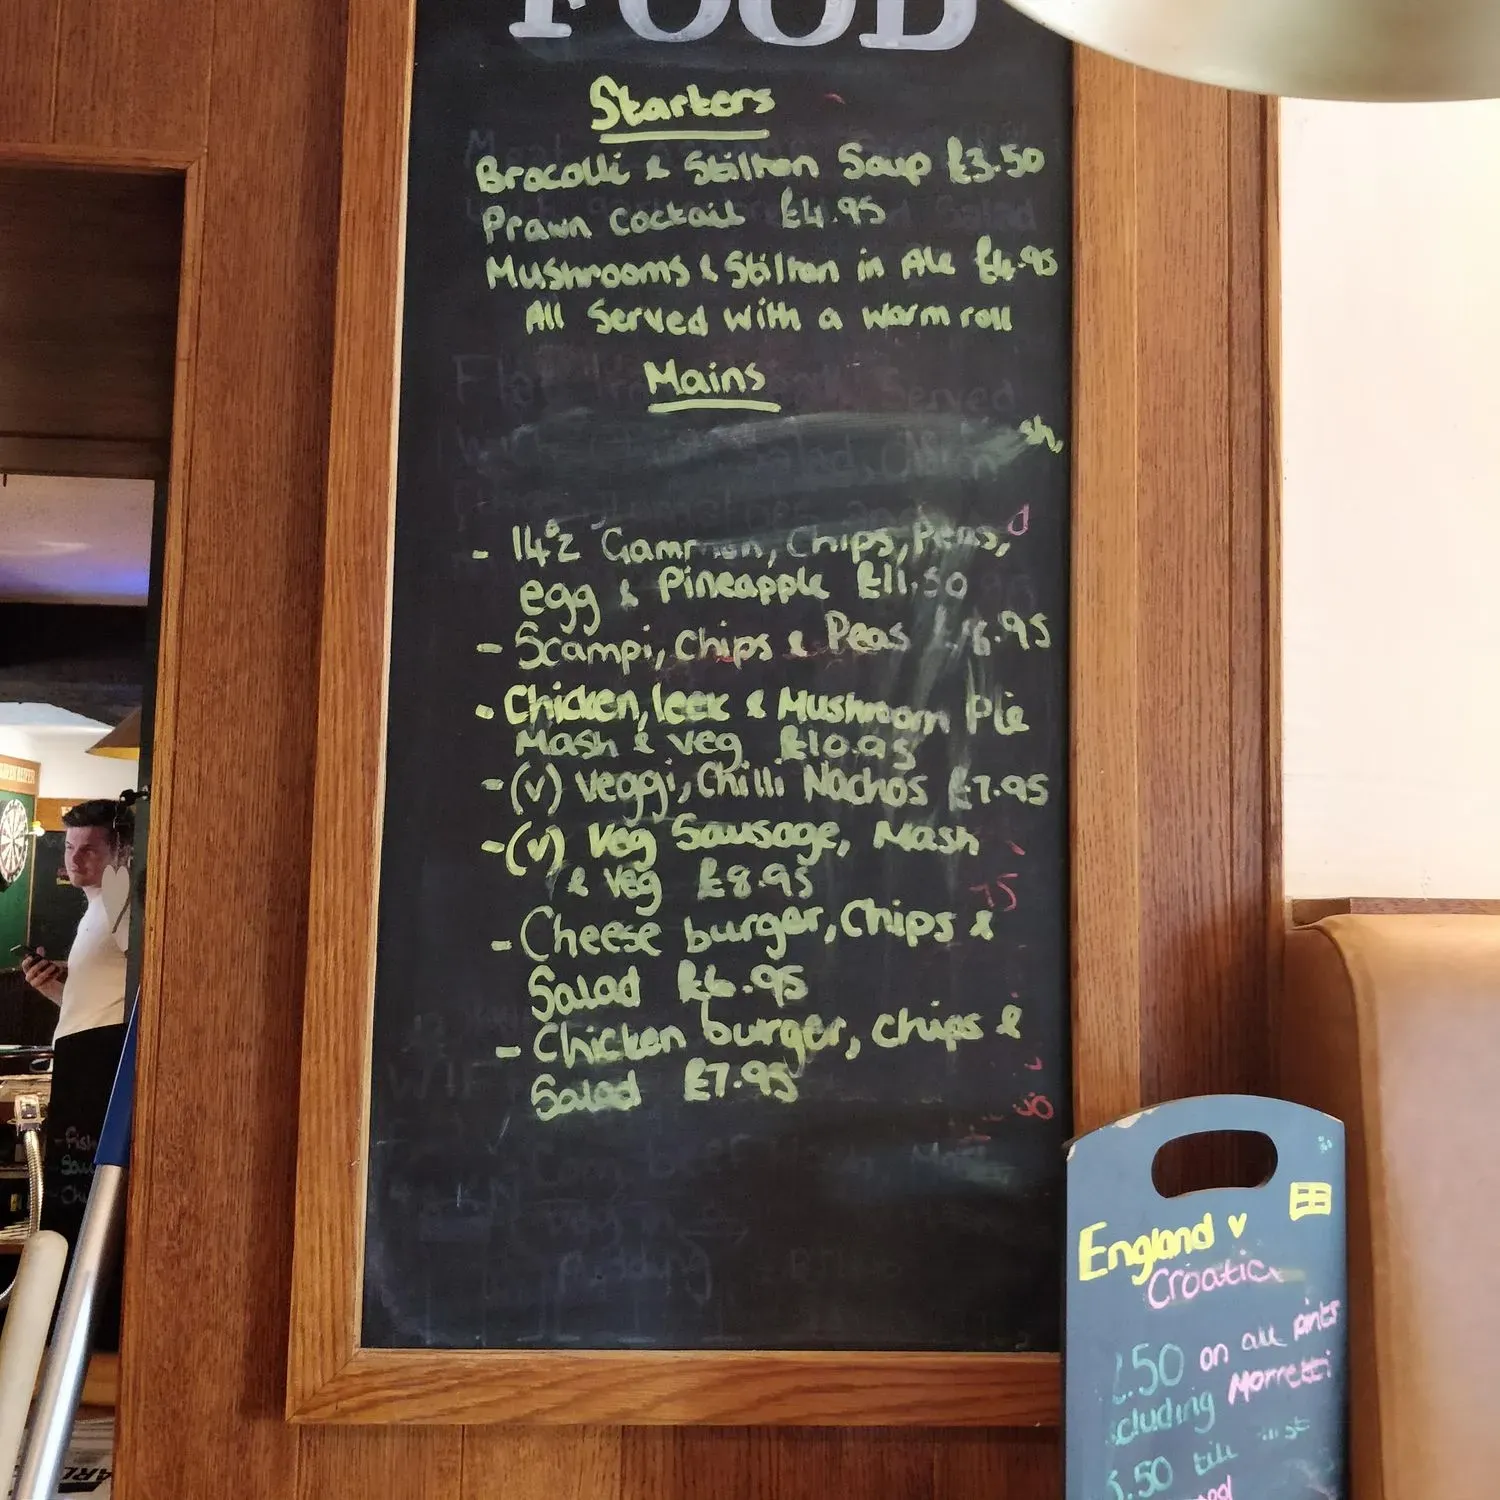 FOOD
Starters
Brocolli & Stilton Soup £3.50
Prawn Cocktail £4.95
Mushrooms & Stilton in Ale £4.95
All Served with a warm roll
Mains
sh,
- 14oz Gammon, Chips, Peas,
egg & Pineapple £11.50
- Scampi, Chips & Peas 8.95
- Chicken, leek & Mushroom Pie
Mash & veg £10.95
- (v) Veggi, Chilli Nachos £7.95
- (v) Veg Sausage, Mash
& veg £8.95
- Cheese burger, Chips &
Salad £6.95
- Chicken burger, chips &
Salad £7.95
England v
Croatia
.50 on all pints
cluding Morretti
.50 till